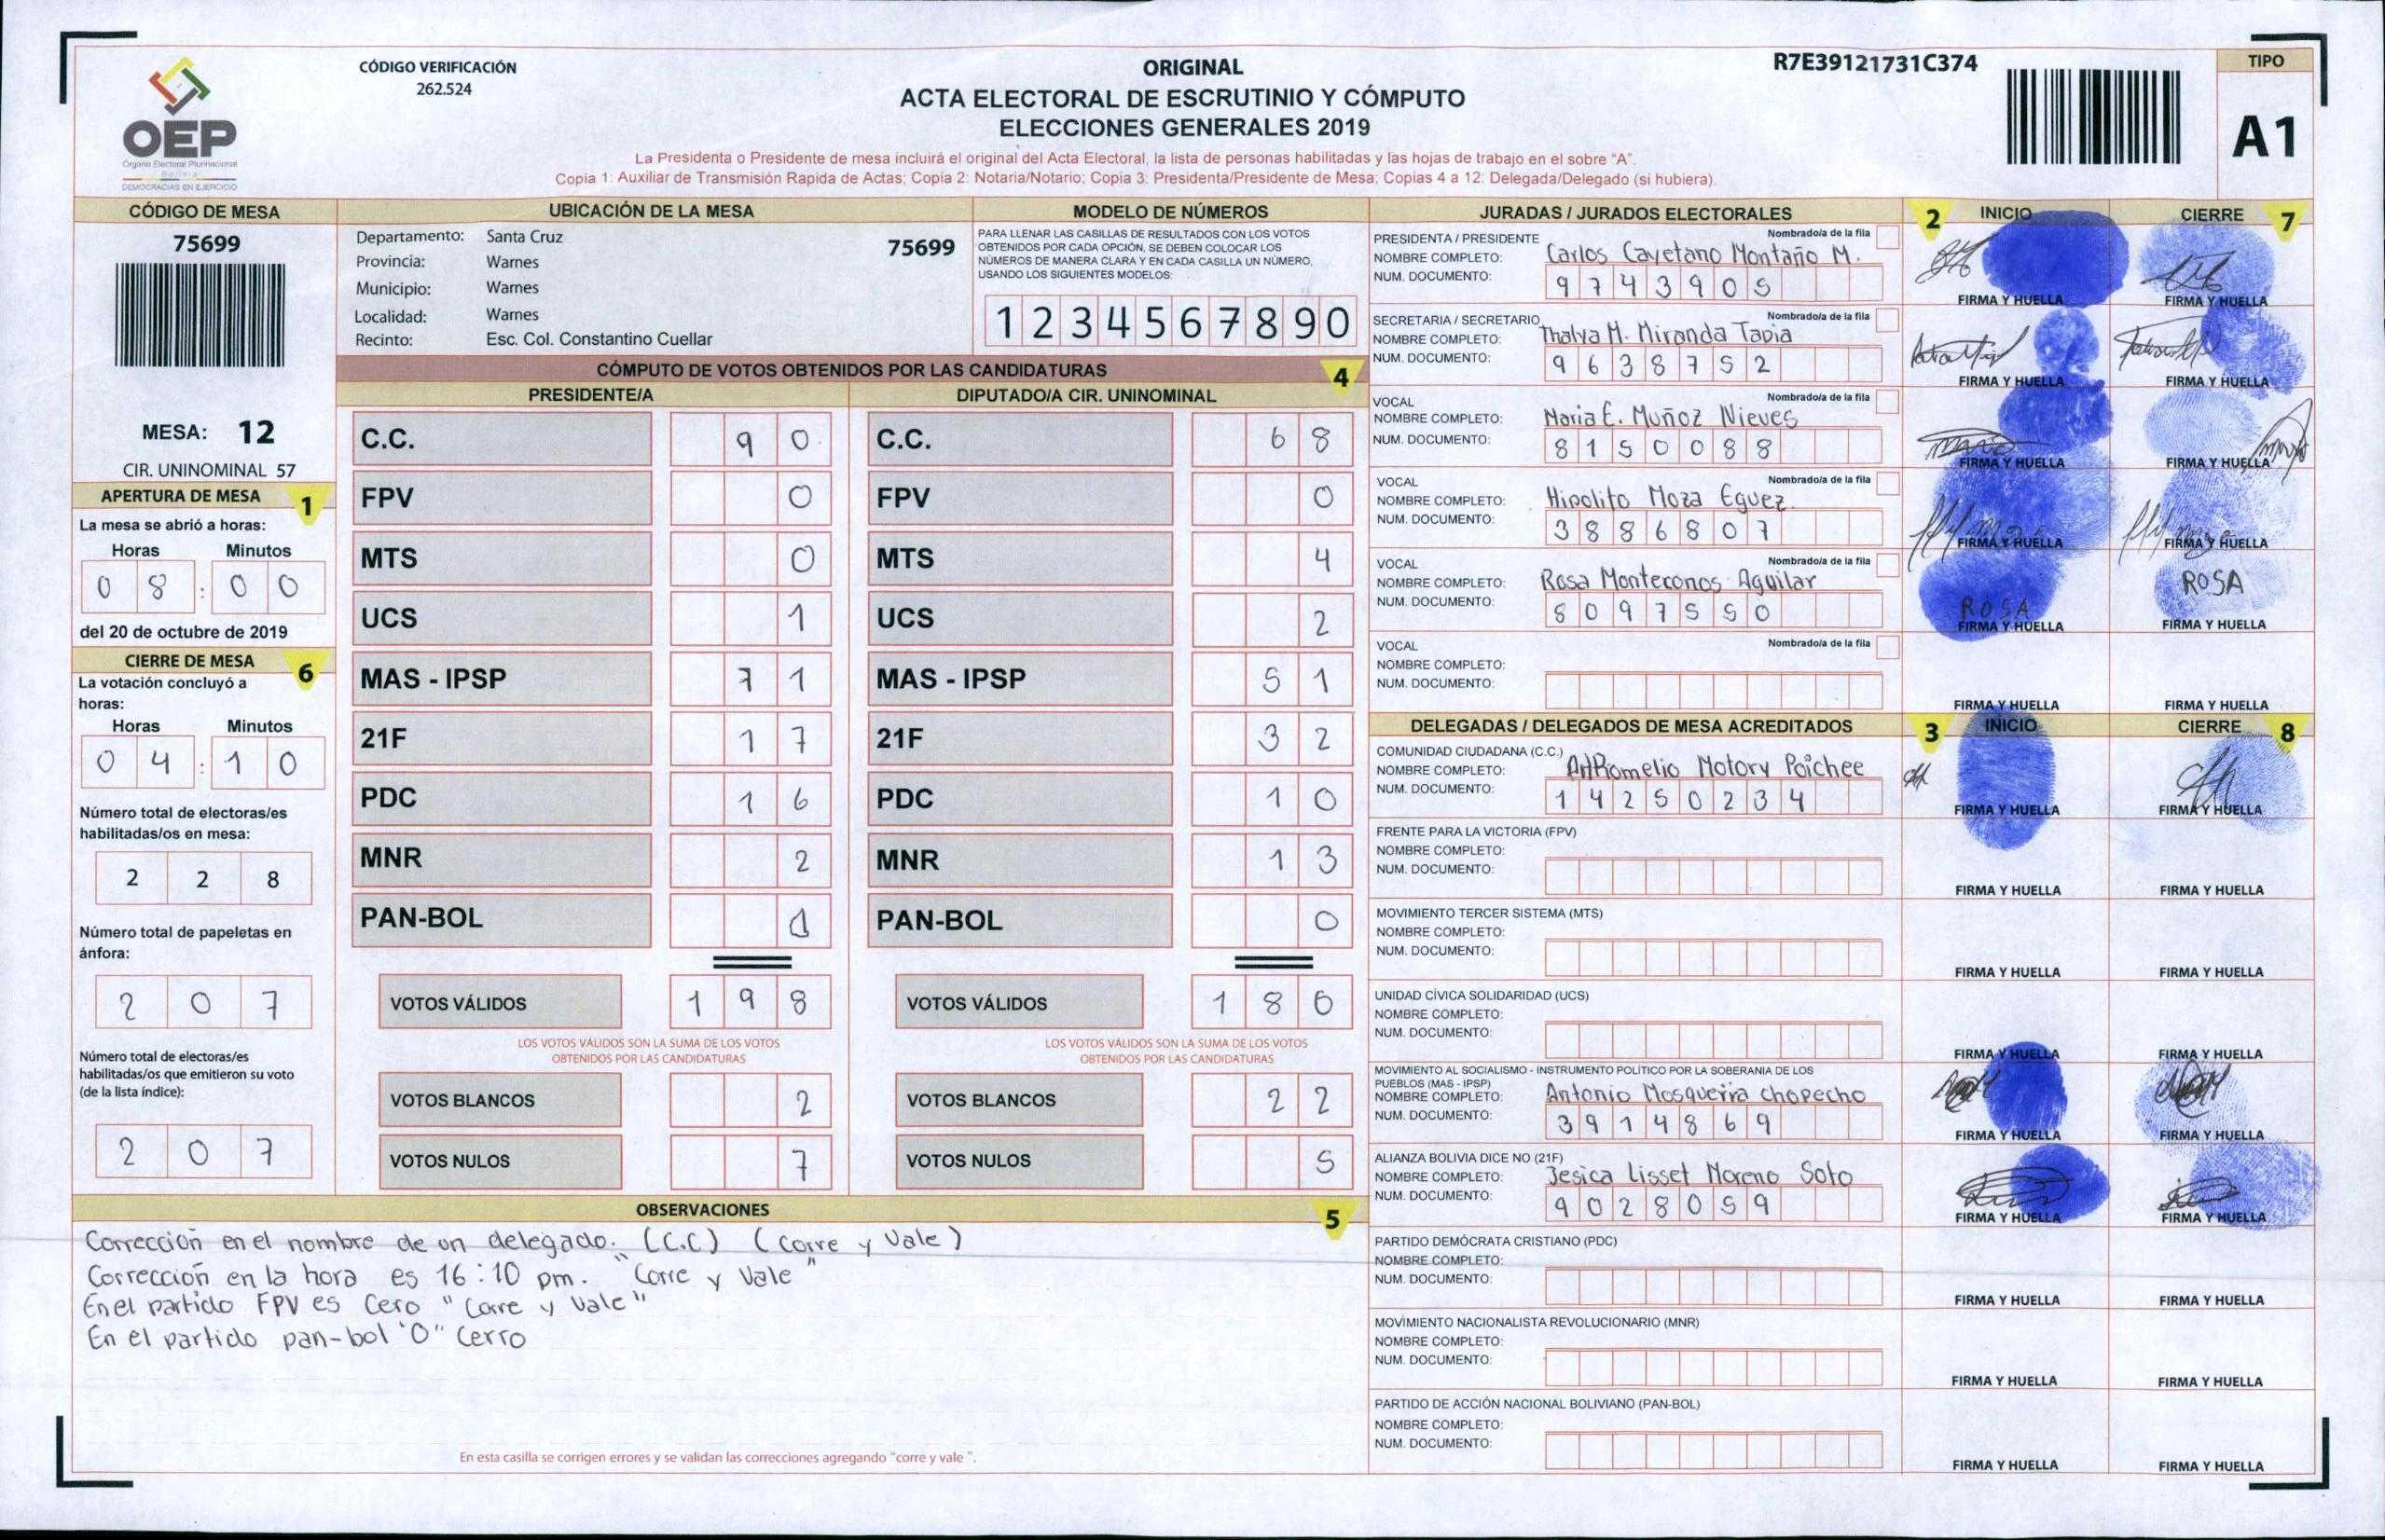 OEP
Órgano Electoral Plurinacional
Bolivia
DEMOCRACIAS EN EJERCICIO
CÓDIGO VERIFICACIÓN
262.524
ORIGINAL
ACTA ELECTORAL DE ESCRUTINIO Y CÓMPUTO
ELECCIONES GENERALES 2019
R7E39121731C374
TIPO
A1
La Presidenta o Presidente de mesa incluirá el original del Acta Electoral, la lista de personas habilitadas y las hojas de trabajo en el sobre "A".
Copia 1: Auxiliar de Transmisión Rapida de Actas; Copia 2: Notaria/Notario; Copia 3: Presidenta/Presidente de Mesa; Copias 4 a 12: Delegada/Delegado (si hubiera).
CÓDIGO DE MESA
75699
MESA: 12
CIR. UNINOMINAL 57
APERTURA DE MESA 1
La mesa se abrió a horas:
Horas Minutos
0 8 : 0 0
del 20 de octubre de 2019
CIERRE DE MESA 6
La votación concluyó a
horas:
Horas Minutos
0 4 : 1 0
Número total de electoras/es
habilitadas/os en mesa:
2 2 8
Número total de papeletas en
ánfora:
2 0 7
Número total de electoras/es
habilitadas/os que emitieron su voto
(de la lista índice):
2 0 7
UBICACIÓN DE LA MESA
Departamento: Santa Cruz 75699
Provincia: Warnes
Municipio: Warnes
Localidad: Warnes
Recinto: Esc. Col. Constantino Cuellar
MODELO DE NÚMEROS
PARA LLENAR LAS CASILLAS DE RESULTADOS CON LOS VOTOS
OBTENIDOS POR CADA OPCIÓN, SE DEBEN COLOCAR LOS
NÚMEROS DE MANERA CLARA Y EN CADA CASILLA UN NÚMERO,
USANDO LOS SIGUIENTES MODELOS:
1 2 3 4 5 6 7 8 9 0
CÓMPUTO DE VOTOS OBTENIDOS POR LAS CANDIDATURAS 4
PRESIDENTE/A DIPUTADO/A CIR. UNINOMINAL
C.C. 9 0 C.C. 6 8
FPV 0 FPV 0
MTS 0 MTS 4
UCS 1 UCS 2
MAS - IPSP 7 1 MAS - IPSP 5 1
21F 1 7 21F 3 2
PDC 1 6 PDC 1 0
MNR 2 MNR 1 3
PAN-BOL PAN-BOL 0
VOTOS VÁLIDOS 1 9 8 VOTOS VÁLIDOS 1 8 0
LOS VOTOS VÁLIDOS SON LA SUMA DE LOS VOTOS LOS VOTOS VÁLIDOS SON LA SUMA DE LOS VOTOS
OBTENIDOS POR LAS CANDIDATURAS OBTENIDOS POR LAS CANDIDATURAS
VOTOS BLANCOS 2 VOTOS BLANCOS 2 2
VOTOS NULOS 7 VOTOS NULOS 5
OBSERVACIONES 5
Corrección en el nombre de un delegado. (C.C) (Corre y Vale)
Corrección en la hora es 16:10 pm. "Corre y Vale"
En el partido FPV es Cero "Corre y Vale"
En el partido pan-bol "0" Cerro
En esta casilla se corrigen errores y se validan las correcciones agregando "corre y vale ".
JURADAS / JURADOS ELECTORALES 2 INICIO CIERRE 7
PRESIDENTA / PRESIDENTE Nombrado/a de la fila
NOMBRE COMPLETO: Carlos Cayetano Montaño M.
NUM. DOCUMENTO: 9 7 4 3 9 0 5
FIRMA Y HUELLA FIRMA Y HUELLA
SECRETARIA / SECRETARIO Nombrado/a de la fila
NOMBRE COMPLETO: Thalya M. Miranda Tapia
NUM. DOCUMENTO: 9 6 3 8 7 5 2
FIRMA Y HUELLA FIRMA Y HUELLA
VOCAL Nombrado/a de la fila
NOMBRE COMPLETO: Maria E. Muñoz Nieves
NUM. DOCUMENTO: 8 1 5 0 0 8 8
FIRMA Y HUELLA FIRMA Y HUELLA
VOCAL Nombrado/a de la fila
NOMBRE COMPLETO: Hipolito Moza Eguez
NUM. DOCUMENTO: 3 8 8 6 8 0 7
FIRMA Y HUELLA FIRMA Y HUELLA
VOCAL Nombrado/a de la fila
NOMBRE COMPLETO: Rosa Monteconos Aguilar
NUM. DOCUMENTO: 8 0 9 7 5 5 0
ROSA ROSA
FIRMA Y HUELLA FIRMA Y HUELLA
VOCAL Nombrado/a de la fila
NOMBRE COMPLETO:
NUM. DOCUMENTO:
FIRMA Y HUELLA FIRMA Y HUELLA
DELEGADAS / DELEGADOS DE MESA ACREDITADOS 3 INICIO CIERRE 8
COMUNIDAD CIUDADANA (C.C.)
NOMBRE COMPLETO: Motory Poichee
NUM. DOCUMENTO: 1 4 2 5 0 2 3 4
FIRMA Y HUELLA FIRMA Y HUELLA
FRENTE PARA LA VICTORIA (FPV)
NOMBRE COMPLETO:
NUM. DOCUMENTO:
FIRMA Y HUELLA FIRMA Y HUELLA
MOVIMIENTO TERCER SISTEMA (MTS)
NOMBRE COMPLETO:
NUM. DOCUMENTO:
FIRMA Y HUELLA FIRMA Y HUELLA
UNIDAD CÍVICA SOLIDARIDAD (UCS)
NOMBRE COMPLETO:
NUM. DOCUMENTO:
FIRMA Y HUELLA FIRMA Y HUELLA
MOVIMIENTO AL SOCIALISMO - INSTRUMENTO POLÍTICO POR LA SOBERANIA DE LOS
PUEBLOS (MAS - IPSP)
NOMBRE COMPLETO: Antonio Mosqueira Chopecho
NUM. DOCUMENTO: 3 9 1 4 8 6 9
FIRMA Y HUELLA FIRMA Y HUELLA
ALIANZA BOLIVIA DICE NO (21F)
NOMBRE COMPLETO: Jesica Lisset Moreno Soto
NUM. DOCUMENTO: 9 0 2 8 0 5 9
FIRMA Y HUELLA FIRMA Y HUELLA
PARTIDO DEMÓCRATA CRISTIANO (PDC)
NOMBRE COMPLETO:
NUM. DOCUMENTO:
FIRMA Y HUELLA FIRMA Y HUELLA
MOVIMIENTO NACIONALISTA REVOLUCIONARIO (MNR)
NOMBRE COMPLETO:
NUM. DOCUMENTO:
FIRMA Y HUELLA FIRMA Y HUELLA
PARTIDO DE ACCIÓN NACIONAL BOLIVIANO (PAN-BOL)
NOMBRE COMPLETO:
NUM. DOCUMENTO:
FIRMA Y HUELLA FIRMA Y HUELLA